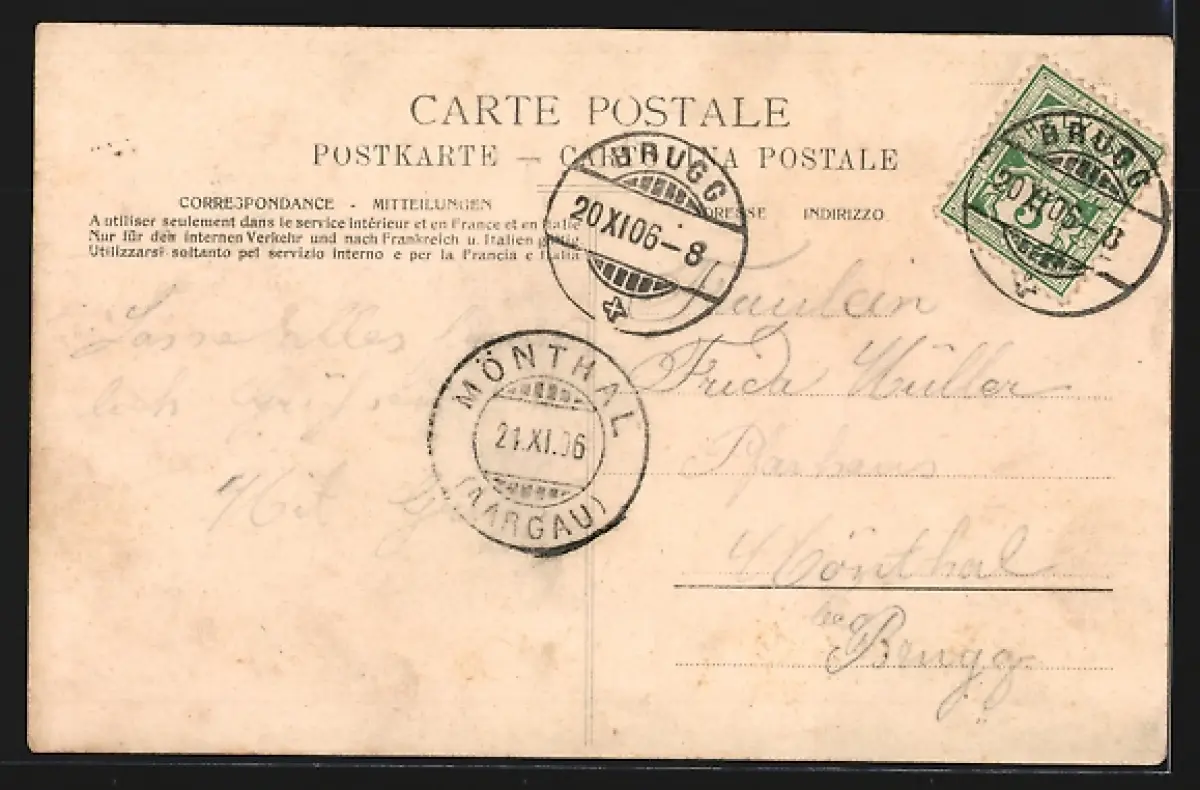 CARTE POSTALE
POSTKARTE — POSTALE
CORRESPONDANCE - MITTEILUNGEN
A utiliser seulement dans le service intérieur et en France et en Italie
Nur für den internen Verkehr und nach Frankreich u. Italien gültig
Utilizzarsi soltanto pel servizio interno e per la Francia e Italia
INDIRIZZO
BRUGG
20 XI 06 – 8
BRUGG
20 XI 06 – 8
HELVETIA
5
MÖNTHAL
21.XI.06
(AARGAU)
Lasse Alles
lich
Mit
Fräulein
Frida Müller
Pfarhaus
Mönthal
bei Brugg